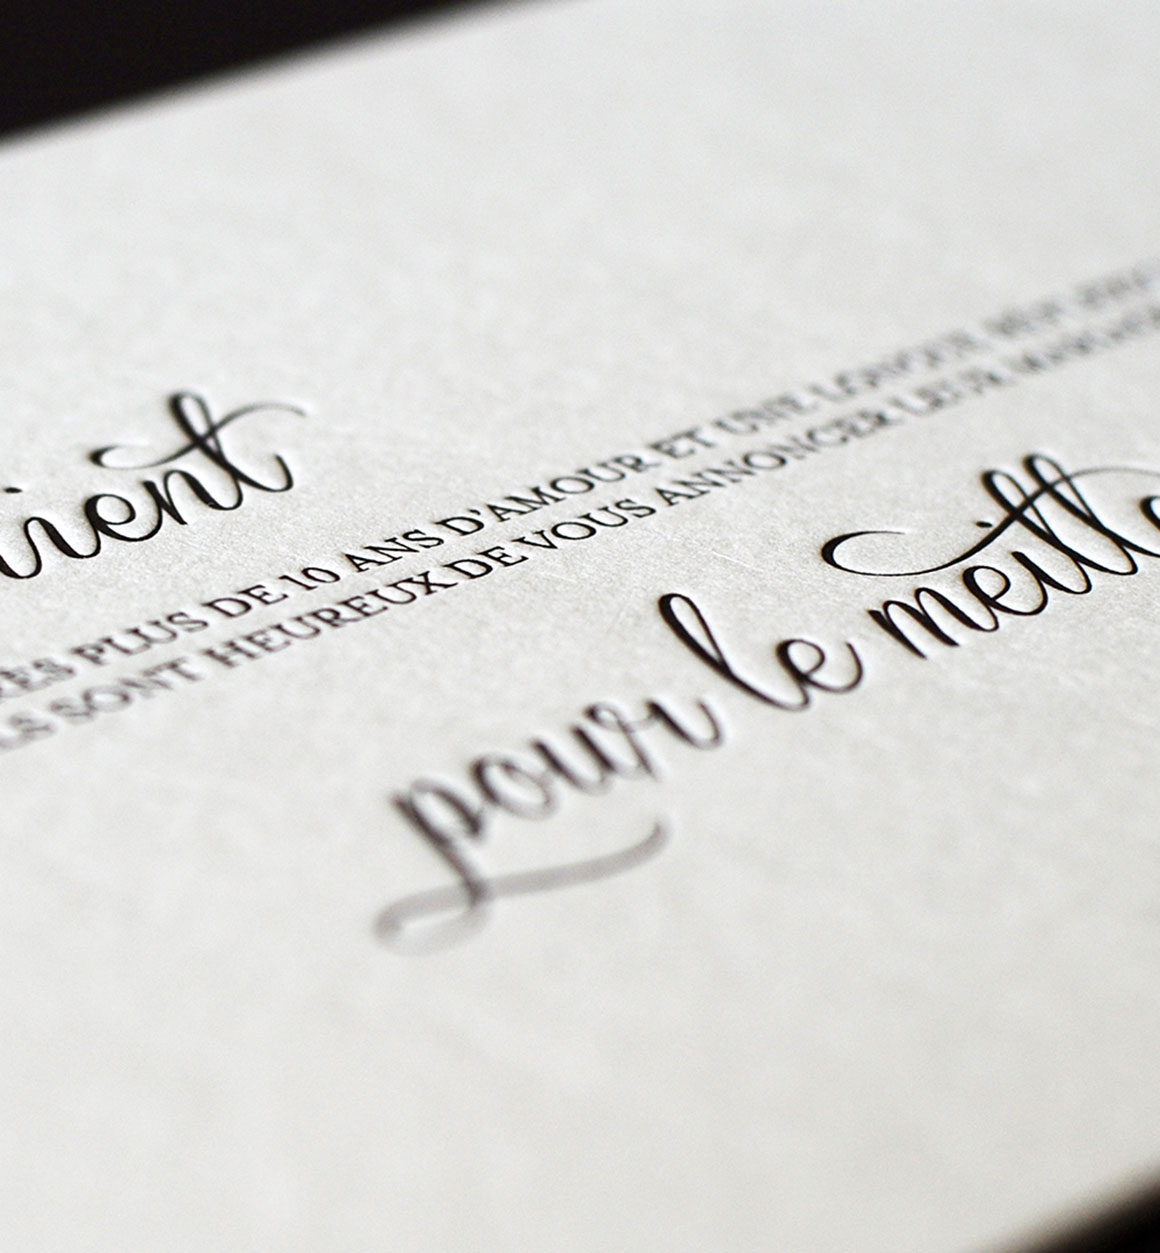 rient
RÈS PLUS DE 10 ANS D'AMOUR ET UNE LONGUE
LS SONT HEUREUX DE VOUS ANNONCER LEUR MARIAGE
pour le meille